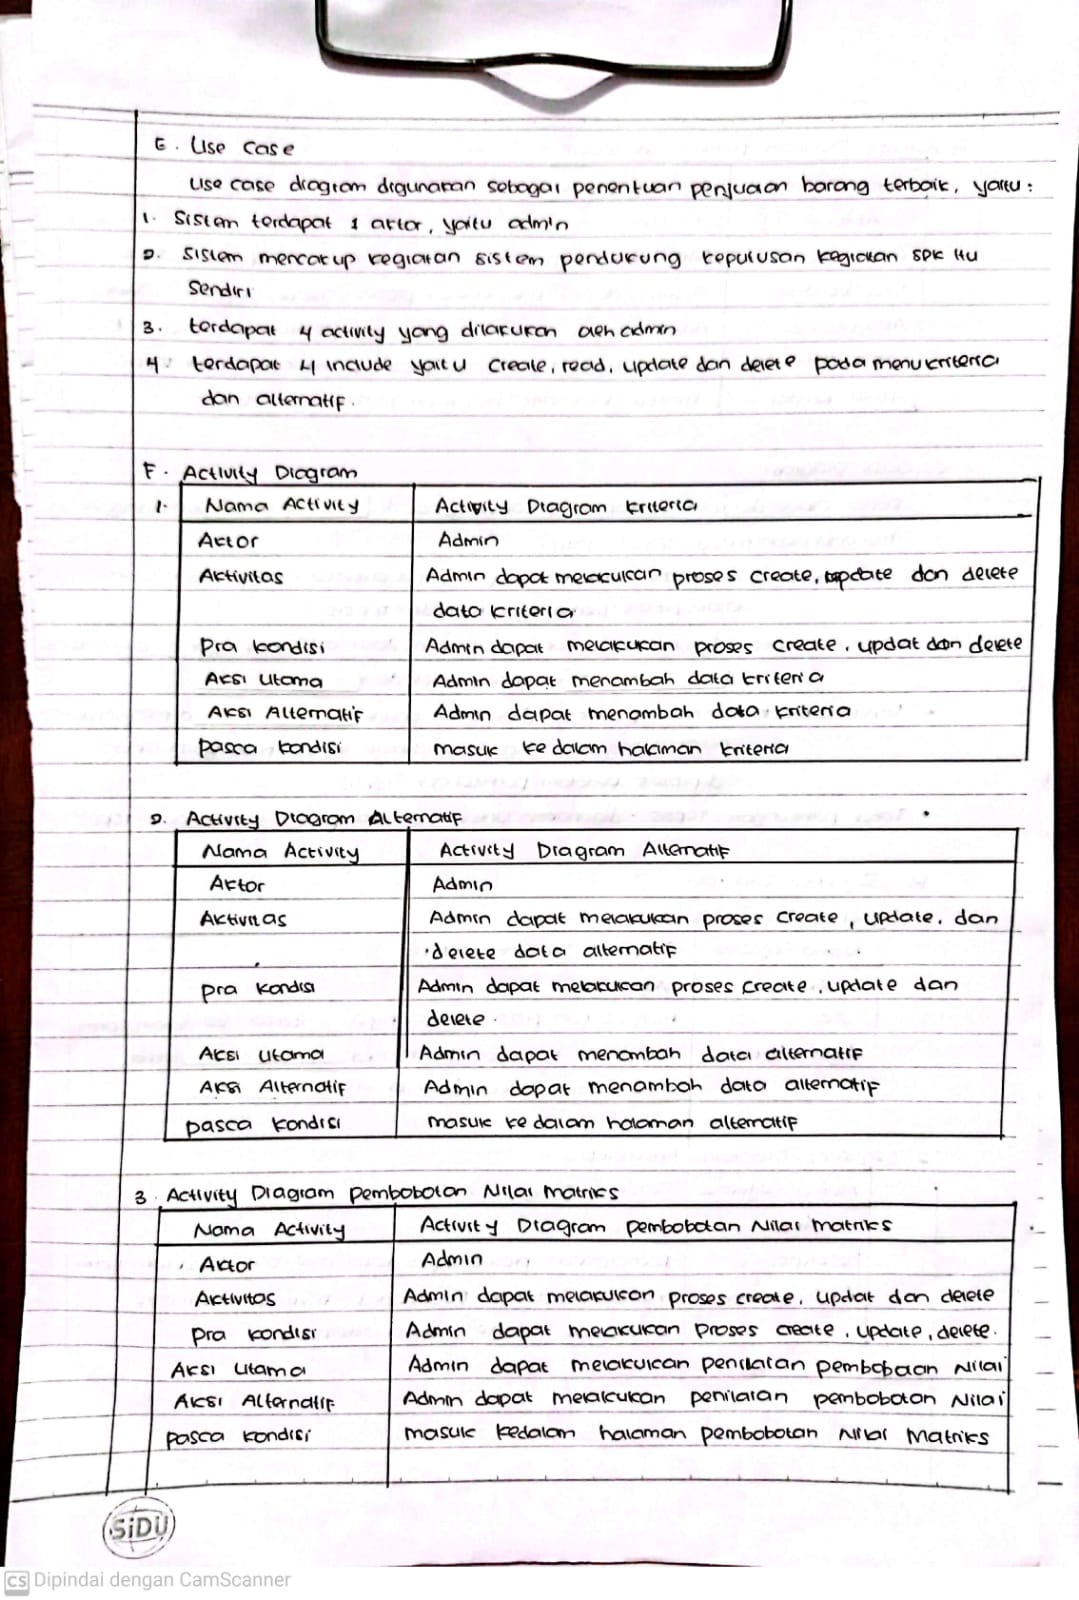 E. Use Case
Use case diagram digunakan sebagai penentuan penjualan barang terbaik, yaitu :
1. Sistem terdapat 1 aktor, yaitu admin
2. Sistem mencakup kegiatan sistem pendukung keputusan kegiatan SPK itu
Sendiri
3. terdapat 4 activity yang dilakukan oleh admin
4. terdapat 4 include yaitu Create, read, update dan delete pada menu kriteria
dan alternatif.
F. Activity Diagram
1. Nama Activity Activity Diagram Kriteria
Aktor Admin
Aktivitas Admin dapat melakukan proses create, update dan delete
data kriteria
Pra kondisi Admin dapat melakukan proses create, updat dan delete
Aksi Utama Admin dapat menambah data kriteria
Aksi Alternatif Admin dapat menambah data kriteria
pasca kondisi masuk ke dalam halaman kriteria
2. Activity Diagram Alternatif
Nama Activity Activity Diagram Alternatif
Aktor Admin
Aktivitas Admin dapat melakukan proses create, update, dan
delete data alternatif
pra kondisi Admin dapat melakukan proses create, update dan
delete.
Aksi Utama Admin dapat menambah data alternatif
Aksi Alternatif Admin dapat menambah data alternatif
pasca kondisi masuk ke dalam halaman alternatif
3. Activity Diagram Pembobotan Nilai Matriks
Nama Activity Activity Diagram pembobotan Nilai Matriks
Aktor Admin
Aktivitas Admin dapat melakukan proses create, updat dan delete
pra kondisi Admin dapat melakukan proses create, update, delete.
Aksi Utama Admin dapat melakukan penilaian pembobaan Nilai
Aksi Alternatif Admin dapat melakukan penilaian pembobotan Nilai
pasca kondisi masuk kedalam halaman pembobotan Nilai Matriks
SiDU
CS Dipindai dengan CamScanner